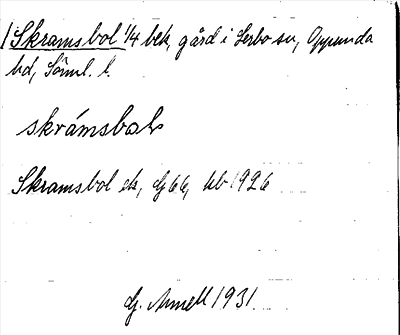 Skramsbol 1/4 bek, gård i Lerbo sn, Oppunda
hd, Söml. l.
skrámsbol
Skramsbol ek, Gj 66, kb 1926
G. Annell 1931.